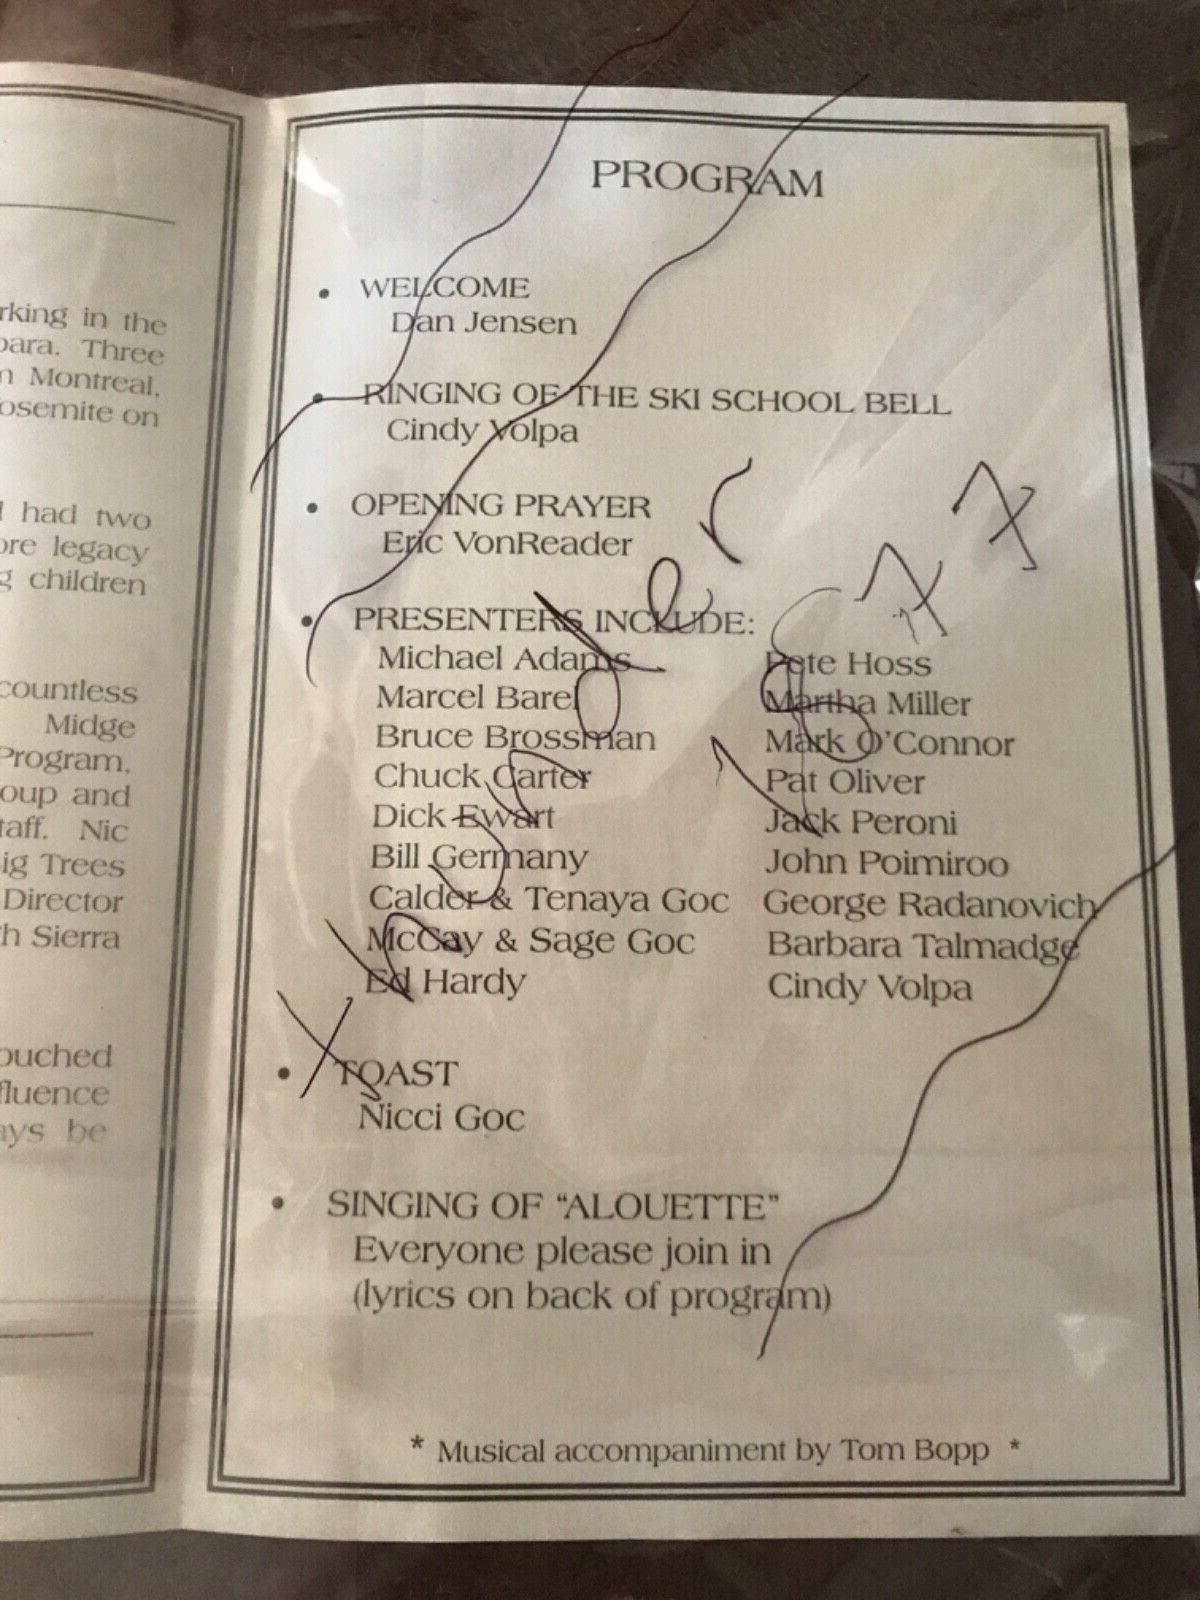 rking in the
bara. Three
m Montreal,
osemite on
had two
ore legacy
g children
countless
Midge
Program,
oup and
taff. Nic
ig Trees
Director
h Sierra
ouched
fluence
ays be
PROGRAM
• WELCOME
Dan Jensen
• RINGING OF THE SKI SCHOOL BELL
Cindy Volpa
• OPENING PRAYER
Eric VonReader
• PRESENTERS INCLUDE:
Michael Adams
Marcel Barel
Bruce Brossman
Chuck Carter
Dick Ewart
Bill Germany
Calder & Tenaya Goc
McCay & Sage Goc
Ed Hardy
Pete Hoss
Martha Miller
Mark O'Connor
Pat Oliver
Jack Peroni
John Poimiroo
George Radanovich
Barbara Talmadge
Cindy Volpa
• TOAST
Nicci Goc
• SINGING OF “ALOUETTE”
Everyone please join in
(lyrics on back of program)
* Musical accompaniment by Tom Bopp *